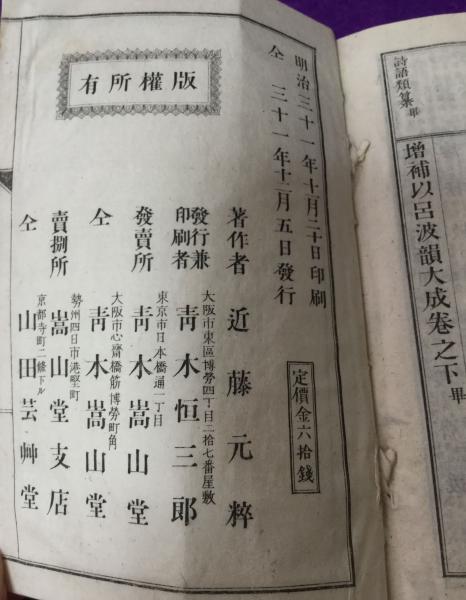 詩語類纂畢
増補以呂波韻大成卷之下畢
明治三十一年十一月二十日印刷
仝 三十一年十二月五日發行
版權所有
定價金六拾錢
著作者 近藤元粹
大阪市東區博勞四丁目二拾七番屋敷
發行兼印刷者 靑木恒三郎
東京市日本橋通一丁目
發賣所 靑木嵩山堂
大阪市心齋橋筋博勞町角
仝 靑木嵩山堂
勢州四日市港竪町
賣捌所 嵩山堂支店
京都寺町二條下ル
仝 山田芸艸堂